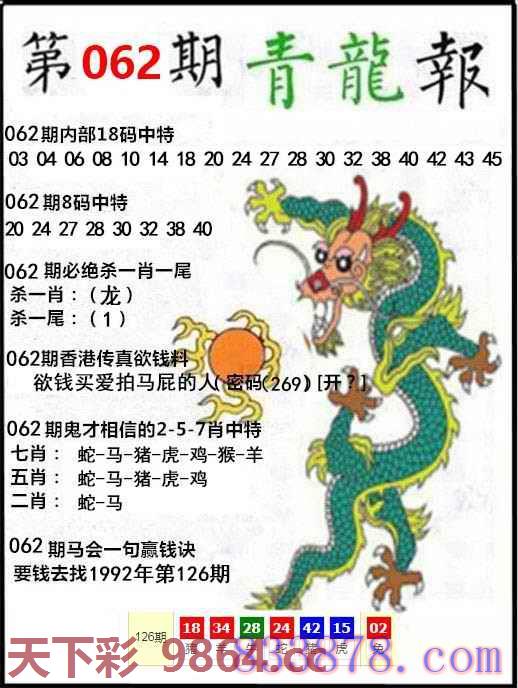 第062期 青龍報
062期内部18码中特
03 04 06 08 10 14 18 20 24 27 28 30 32 38 40 42 43 45
062期8码中特
20 24 27 28 30 32 38 40
062期必绝杀一肖一尾
杀一肖：（龙）
杀一尾：（1）
062期香港传真欲钱料
欲钱买爱拍马屁的人(密码(269)[开？]
062期鬼才相信的2-5-7肖中特
七肖： 蛇-马-猪-虎-鸡-猴-羊
五肖： 蛇-马-猪-虎-鸡
二肖： 蛇-马
062期马会一句赢钱诀
要钱去找1992年第126期
126期 18 34 28 24 42 15 02
天下彩 9864.cc